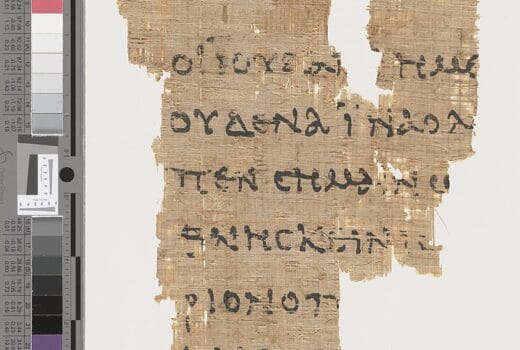 ΟΙ ΙΟΥΔΑΙ ΗΜΕ
ΟΥΔΕΝΑ ΪΝΑ Ο Λ
ΠΕΝ CΗΜΑΙΝΩ
ΘΝΗCΚΕΙΝ ΙC
ΡΙΟΝ Ο Π